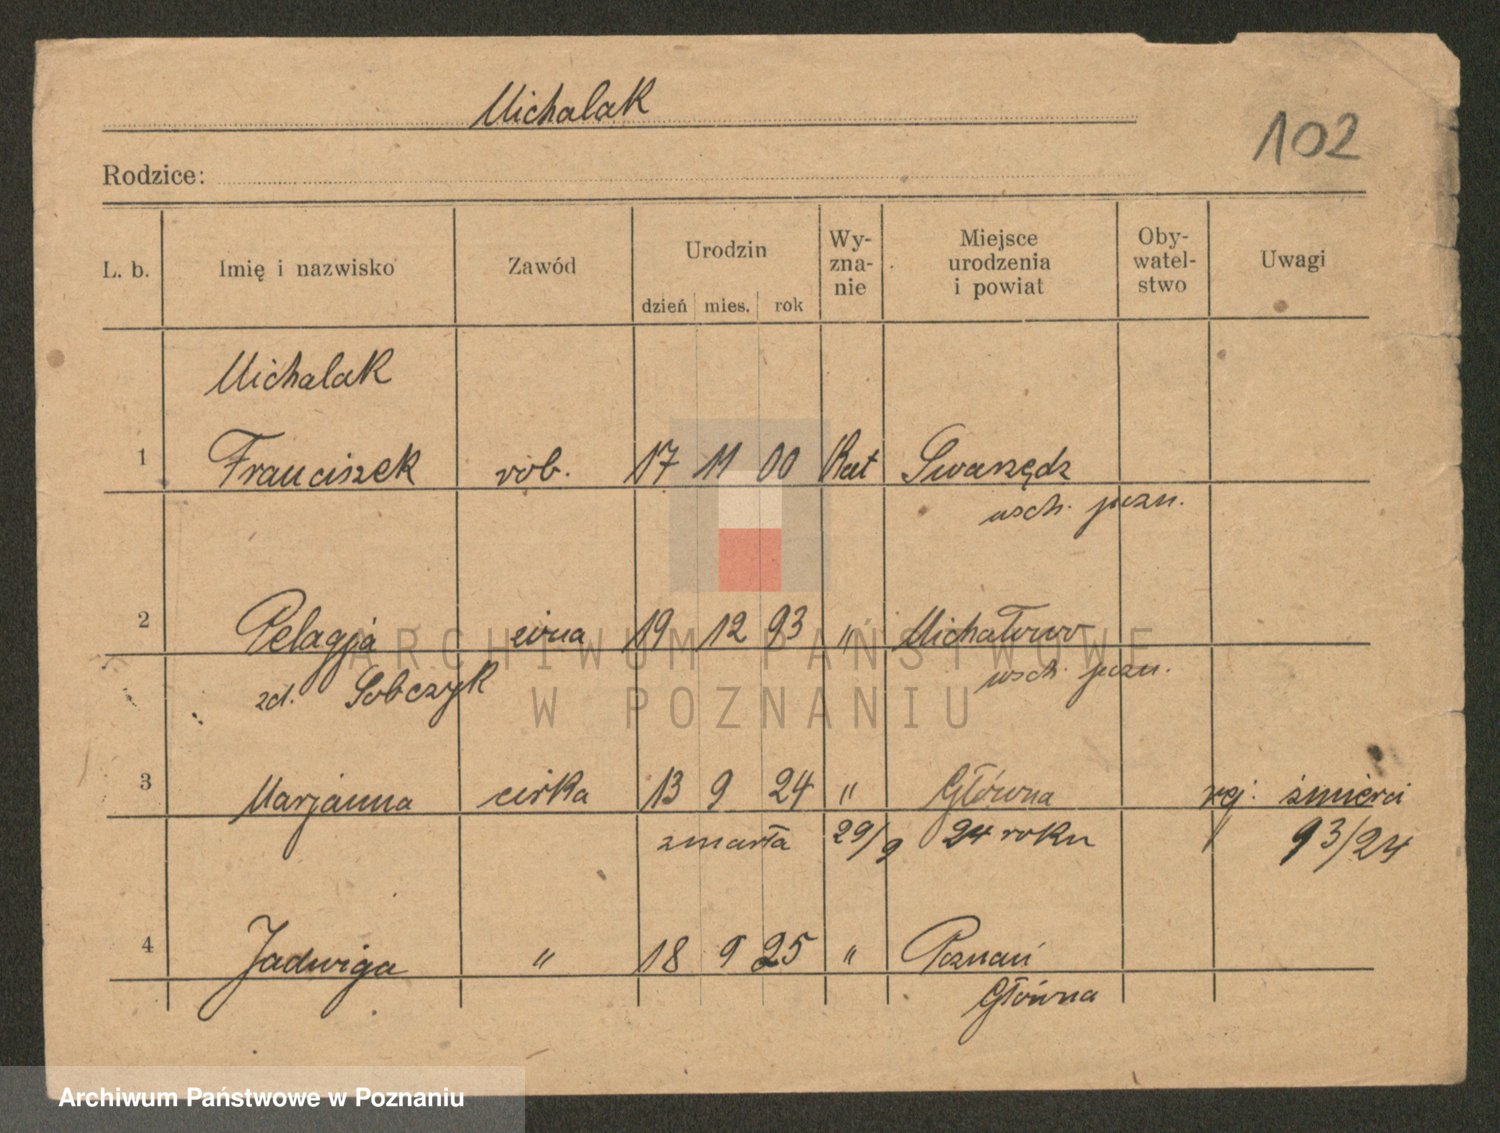 Michalak
102
Rodzice:
L. b. Imię i nazwisko Zawód Urodzin dzień mies. rok Wy-zna-nie Miejsce urodzenia i powiat Oby-watel-stwo Uwagi
Michalak
1 Franciszek rob. 17 11 00 Kat Swarzędz
wsch. pozn.
2 Pelagja żona 19 12 93 " Michałowo
zd. Sobczyk wsch. pozn.
3 Marjanna córka 13 9 24 " Główna rej. śmierci
zmarła 29/9 24 roku 93/24
4 Jadwiga " 18 9 25 " Poznań
Główna
ARCHIWUM PAŃSTWOWE
W POZNANIU
Archiwum Państwowe w Poznaniu